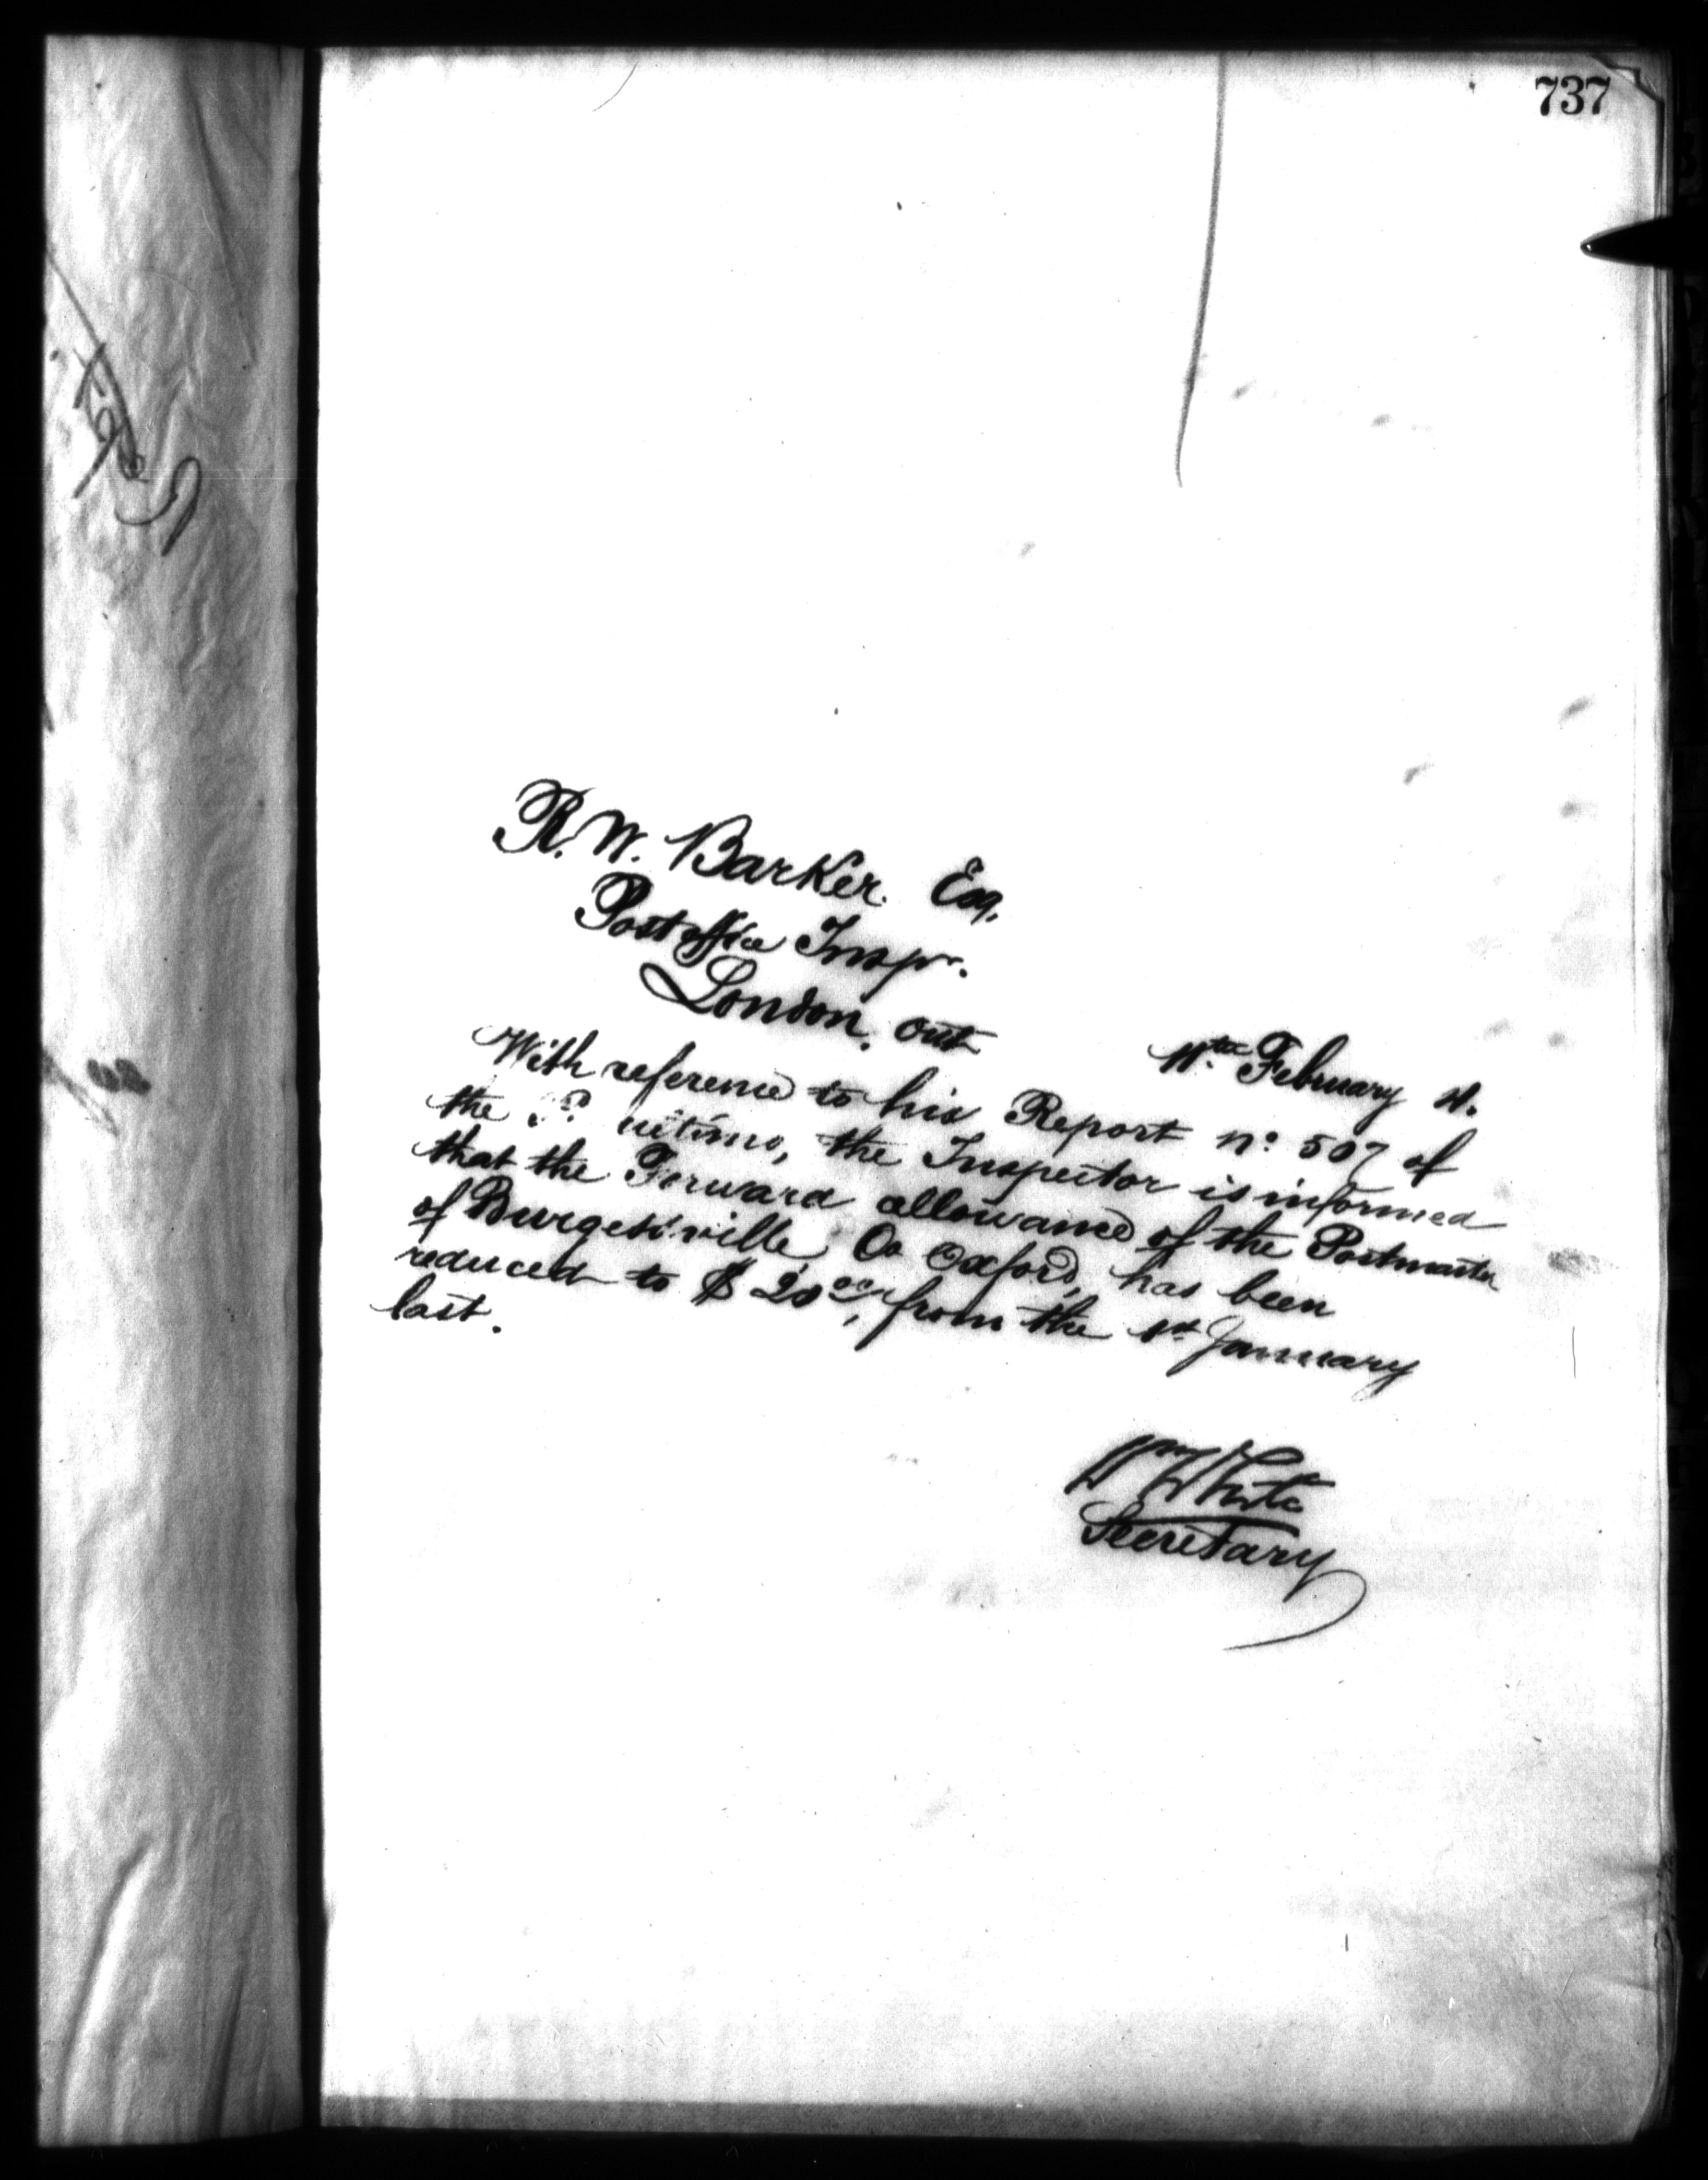 737
R. W. Barker. Esq.
Post office Inspr.
London. Ont
11th February
With reference to his Report no. 507 of
the ultimo, the Inspector is informed
that the Forward allowance of the Postmaster
of Burgessville Co Oxford, has been
reduced to $20.00, from the 1st January
last.
Wm White
Secretary